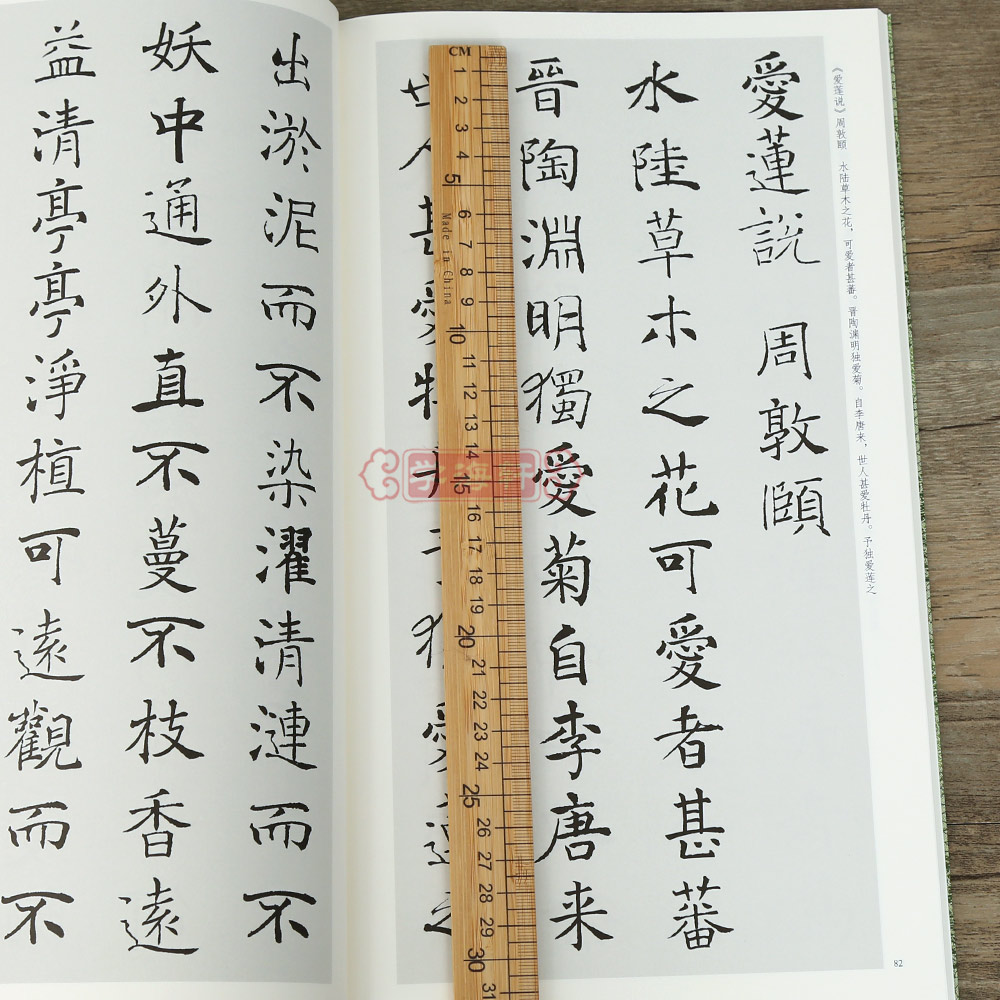 《爱莲说》周敦颐 水陆草木之花，可爱者甚蕃。晋陶渊明独爱菊。自李唐来，世人甚爱牡丹。予独爱莲之
愛蓮說 周敦頤
水陸草木之花可愛者甚蕃
晉陶淵明獨愛菊自李唐来
世人甚愛牡獨愛蓮之
出淤泥而不染濯清漣而不
妖中通外直不蔓不枝香遠
益清亭亭淨植可遠觀而不
82
CM
1 2 3 4 5 6 7 8 9 10 11 12 13 14 15 16 17 18 19 20 21 22 23 24 25 26 27 28 29 30 31
Made in China
学海轩